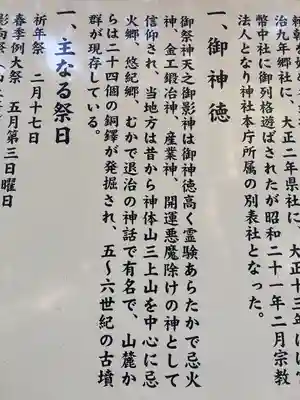 治九年郷社に、大正二年県社に、大正十三年には官
幣中社に御列格遊ばされたが昭和二十一年二月宗教
法人となり神社本庁所属の別表社となった。
一、御神徳
御祭神天之御影神は御神徳高く霊験あらたかで忌火
神、金工鍛冶神、産業神、開運悪魔除けの神として
信仰され、当地方は昔から神体山三上山を中心に忌
火郷、悠紀郷、むかで退治の神話で有名で、山麓か
らは二十四個の銅鐸が発掘され、五〜六世紀の古墳
群が現存している。
一、主なる祭日
祈年祭 二月十七日
春季例大祭 五月第三日曜日
影向祭